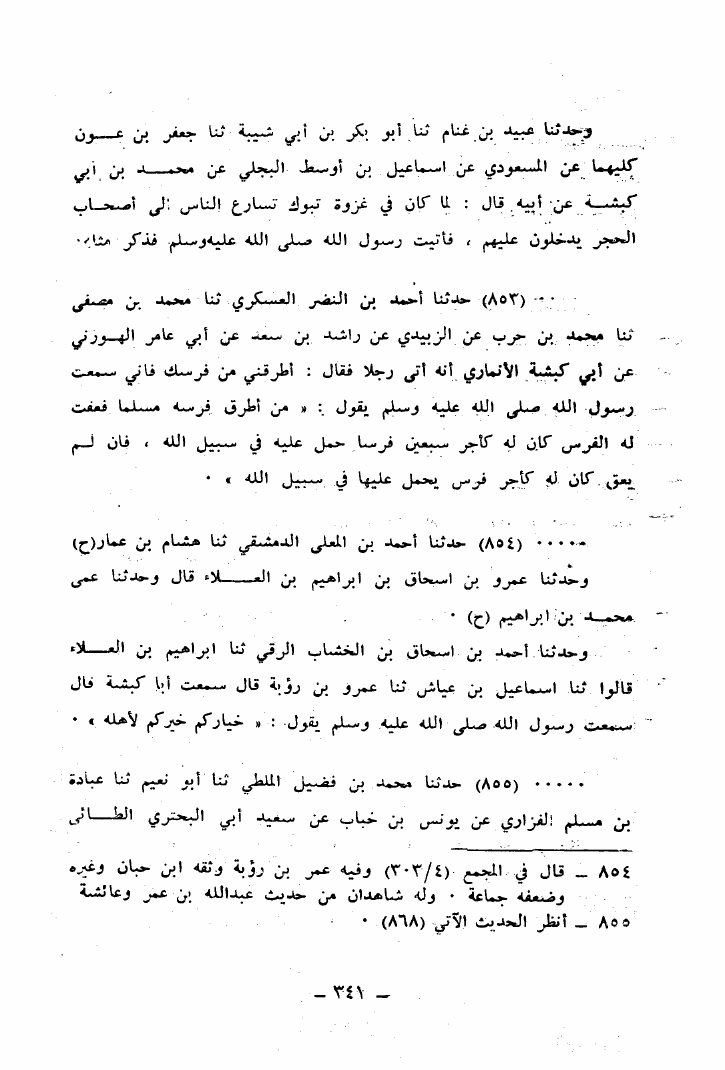 وحدثنا عبيد بن غنام ثنا أبو بكر بن أبي شيبة ثنا جعفر بن عــون
كليهما عن المسعودي عن اسماعيل بن أوسط البجلي عن محمــد بن أبي
كبشــة عن أبيه قال : لما كان في غزوة تبوك تسارع الناس إلى أصحـاب
الحجر يدخلون عليهم ، فأتيت رسول الله صلى الله عليه وسلم فذكر مثله ٠
٠٠ (٨٥٣) حدثنا أحمد بن النضر العسكري ثنا محمد بن مصفى
ثنا محمد بن حرب عن الزبيدي عن راشد بن سعد عن أبي عامر الهـوزني
عن أبي كبشة الأنماري أنه أتى رجلا فقال : أطرقني من فرسك فاني سمعت
رسول الله صلى الله عليه وسلم يقول : « من أطرق فرسه مسلما فعقت
له الفرس كان له كأجر سبعين فرسا حمل عليه في سبيل الله ، فان لـم
يعق كان له كأجر فرس يحمل عليها في سبيل الله » ٠
٠٠٠٠٠ (٨٥٤) حدثنا أحمد بن المعلى الدمشقي ثنا هشام بن عمار(ح)
وحدثنا عمرو بن اسحاق بن ابراهيم بن العــــلاء قال وحدثنا عمى
محمـد بن ابراهيم (ح) ٠
وحدثنا أحمد بن اسحاق بن الخشاب الرقي ثنا ابراهيم بن العـــلاء
قالوا ثنا اسماعيل بن عياش ثنا عمرو بن رؤبة قال سمعت أبا كبشة قال
سمعت رسول الله صلى الله عليه وسلم يقول : « خياركم خيركم لأهله » ٠
٠٠٠٠٠ (٨٥٥) حدثنا محمد بن فضيل الملطي ثنا أبو نعيم ثنا عبادة
بن مسلم الفزاري عن يونس بن خباب عن سعيد أبي البحتري الطــائى
٨٥٤ ــ قال في المجمع (٣٠٣/٤) وفيه عمر بن رؤبة وثقه ابن حبان وغيره
وضعفه جماعة ٠ وله شاهدان من حديث عبدالله بن عمر وعائشة
٨٥٥ ــ أنظر الحديث الآتي (٨٦٨) ٠
ــ ٣٤١ ــ